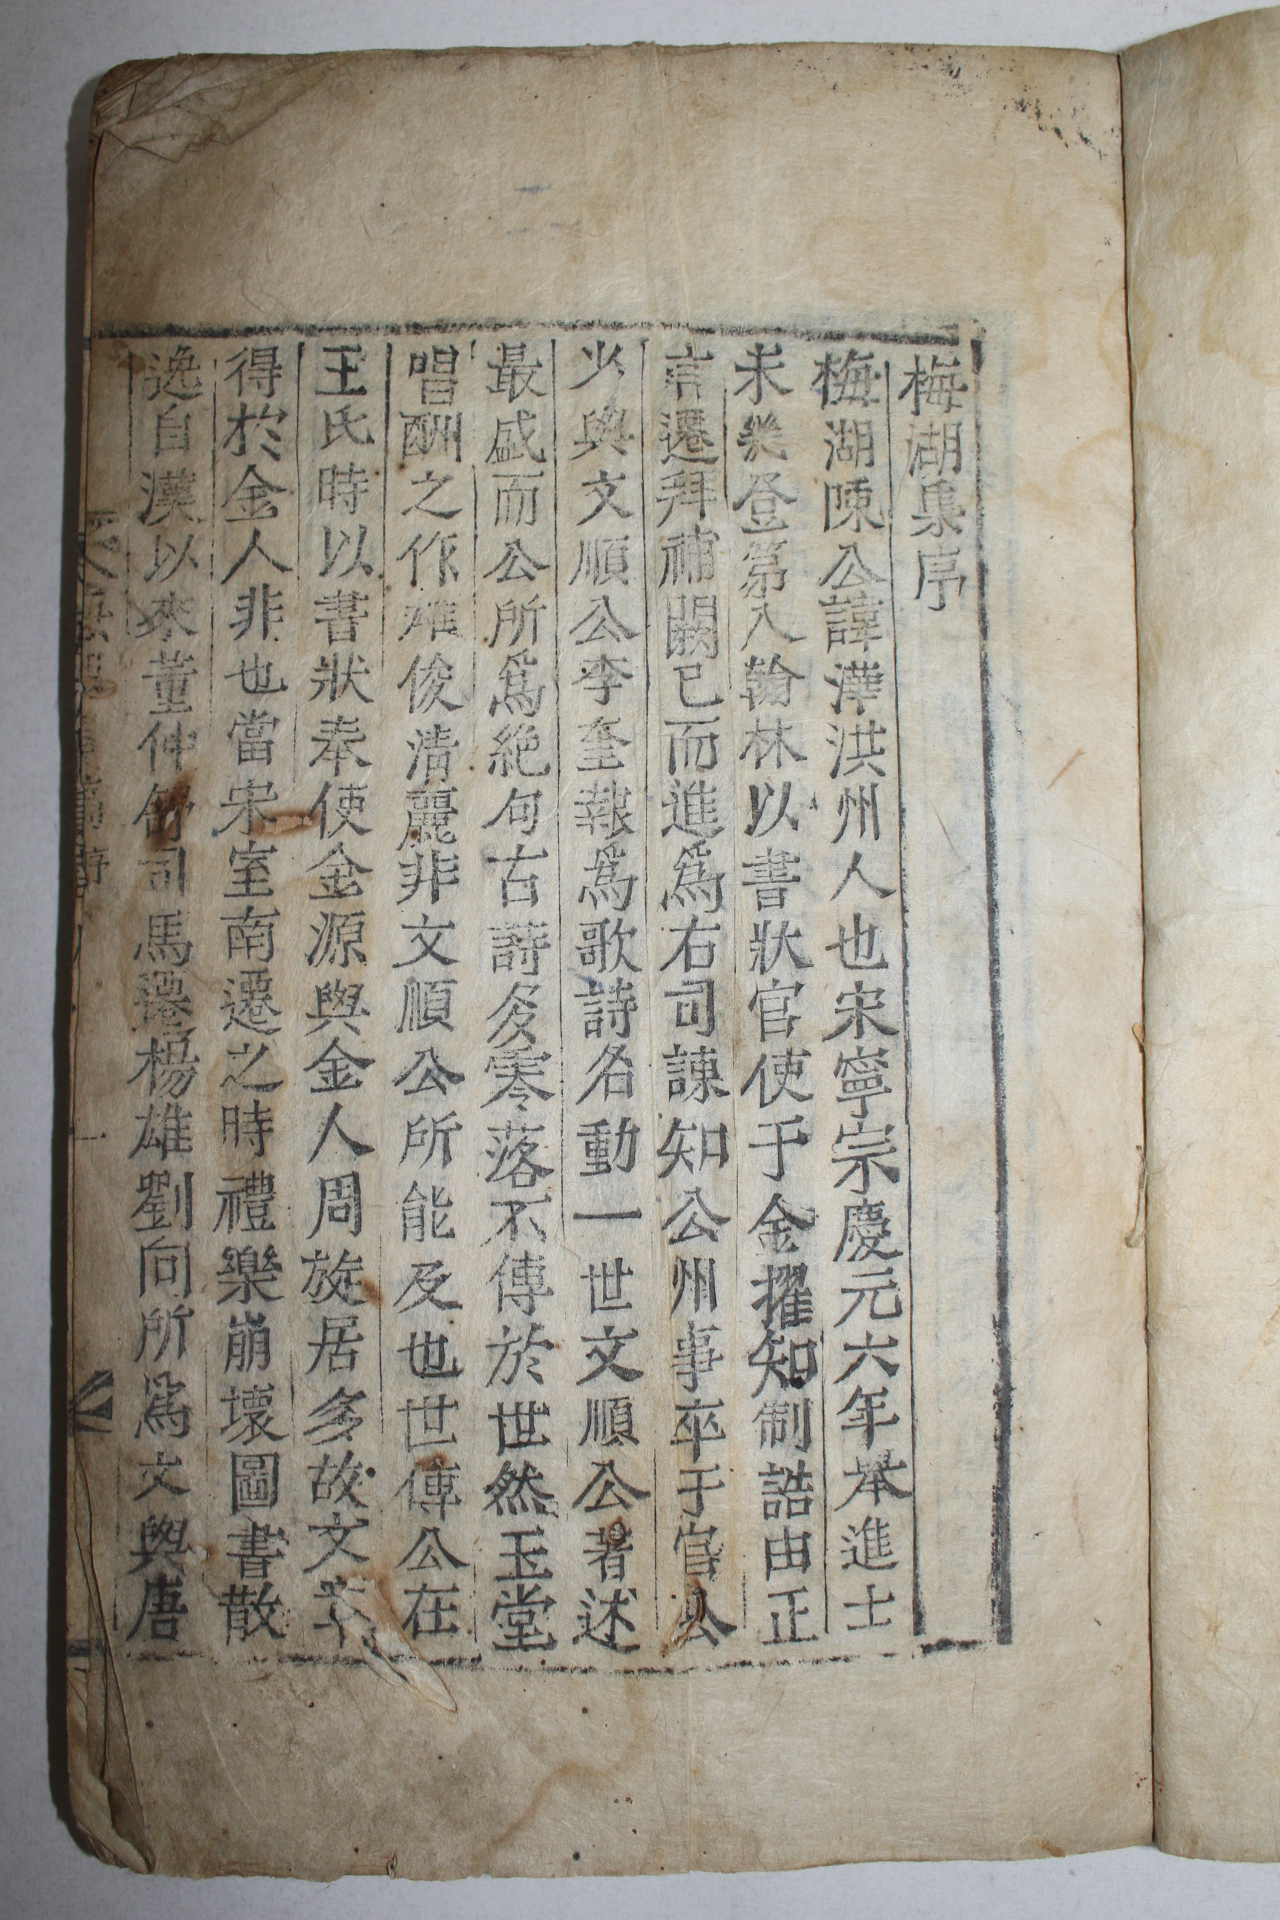 梅湖集序
梅湖陳公諱澕洪州人也宋寧宗慶元六年举進士
未幾登第入翰林以書狀官使于金擢知制誥由正
言遷拜補闕已而進爲右司諫知公州事卒于官公
少與文順公李奎報爲歌詩名動一世文順公著述
最盛而公所爲絶句古詩多零落不傳於世然玉堂
唱酬之作雄俊清麗非文順公所能及也世傳公在
王氏時以書狀奉使金源與金人周旋居多故文章
得於金人非也當宋室南遷之時禮樂崩壞圖書散
逸自漢以來董仲舒司馬遷楊雄劉向所爲文與唐
序 一